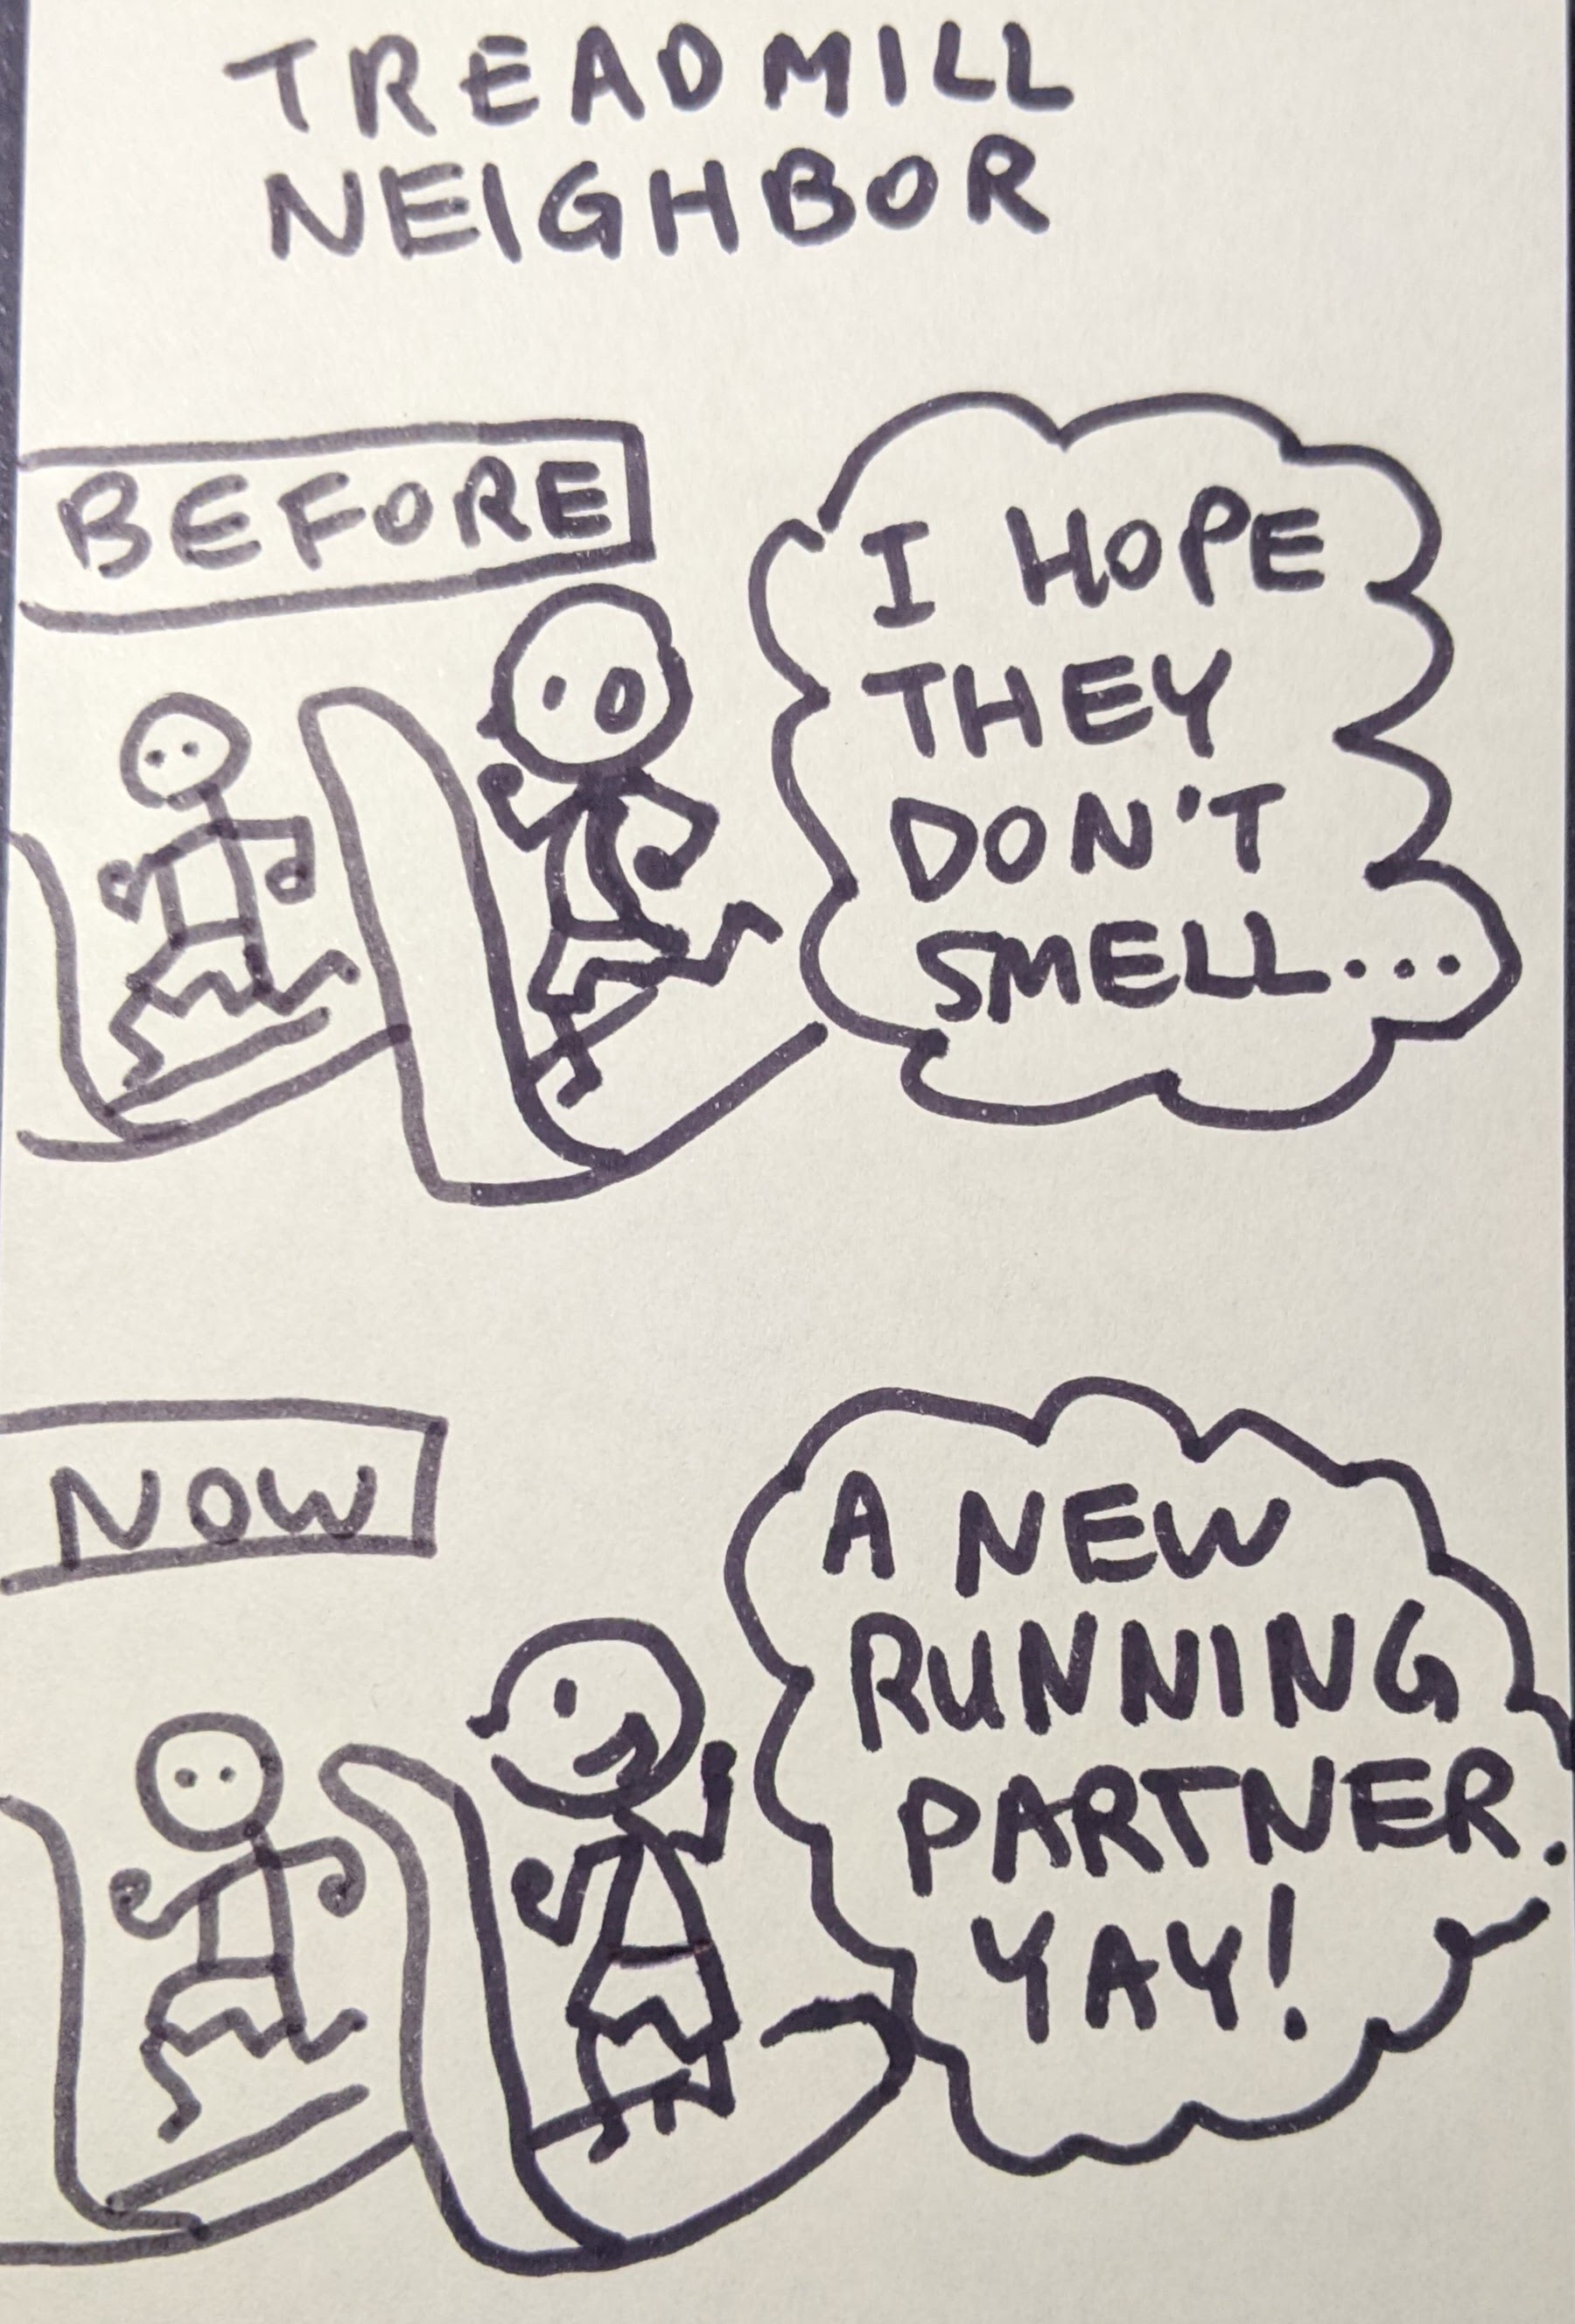 TREADMILL
NEIGHBOR
BEFORE
I HOPE
THEY
DON'T
SMELL...
NOW
A NEW
RUNNING
PARTNER.
YAY!